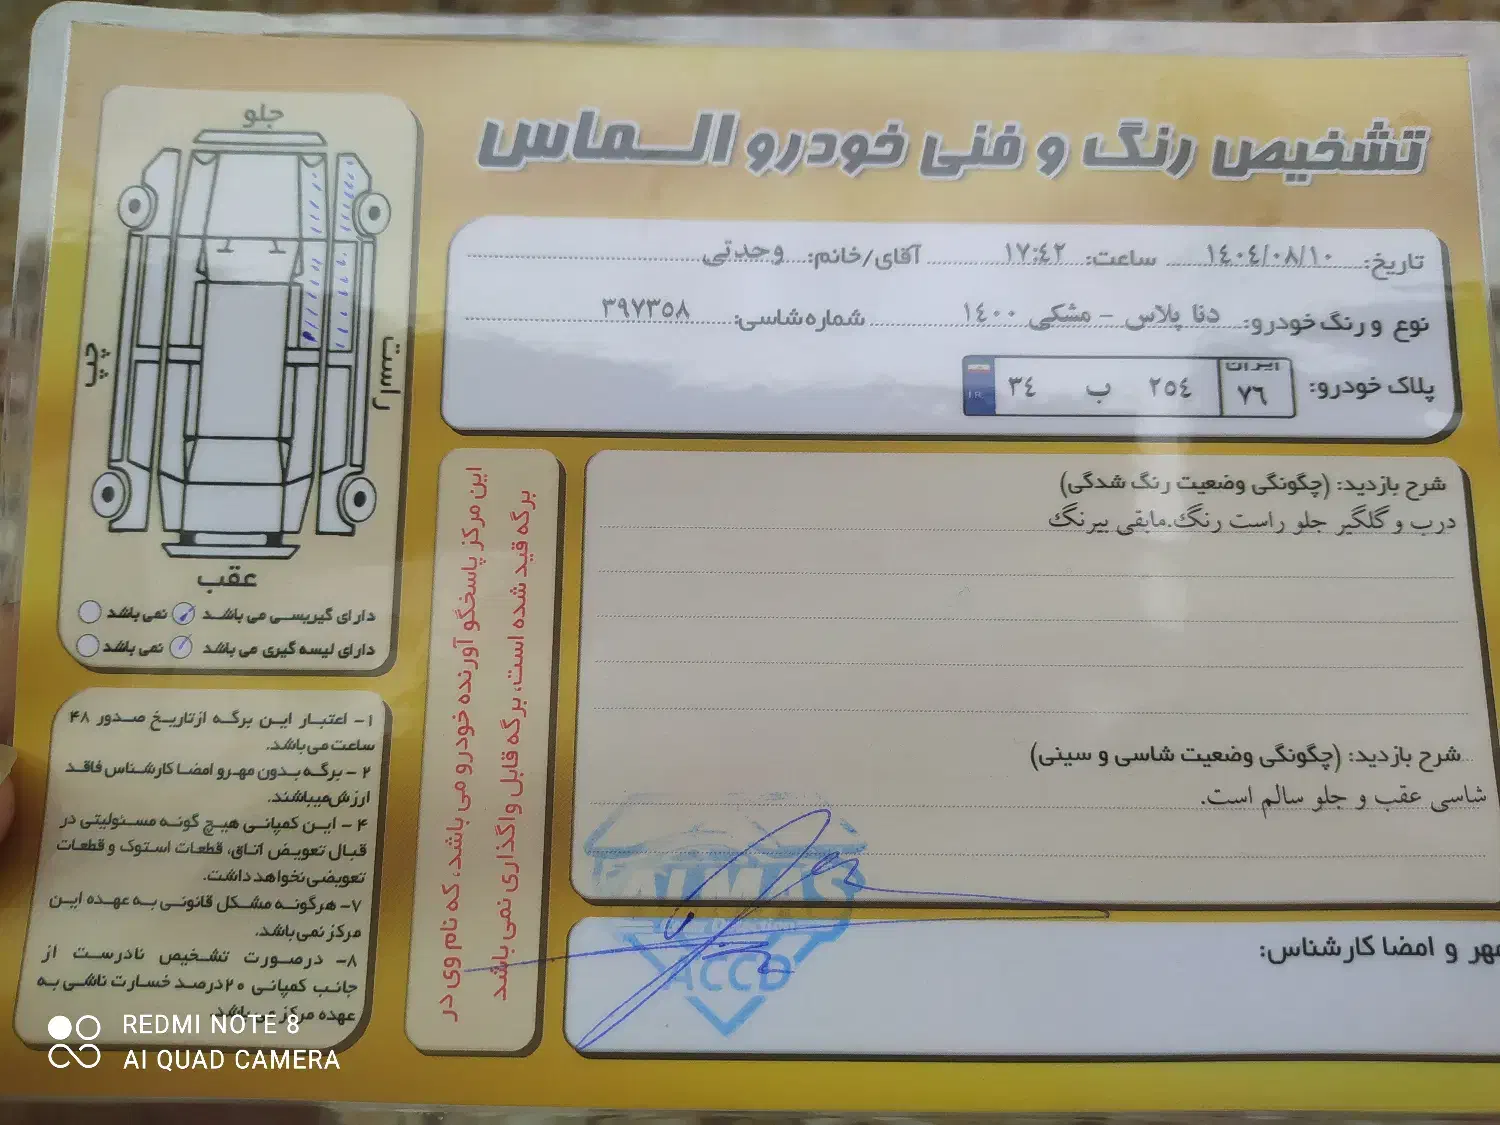 تشخیص رنگ و فنی خودرو الماس
تاریخ: ۱۴۰۴/۰۸/۱۰ ساعت: ۱۷:۴۲ آقای/خانم: وحدتی
نوع و رنگ خودرو: دنا پلاس - مشکی ۱۴۰۰ شماره شاسی: ۳۹۷۳۵۸
پلاک خودرو: ایران ۷۶ ۲۵۴ ب ۳۴
I.R.
شرح بازدید: (چگونگی وضعیت رنگ شدگی)
درب و گلگیر جلو راست رنگ.مابقی بیرنگ
شرح بازدید: (چگونگی وضعیت شاسی و سینی)
شاسی عقب و جلو سالم است.
مهر و امضا کارشناس:
ALMAS
ACCD
این مرکز پاسخگو آورنده خودرو می باشد، که نام وی در
برگه قید شده است، برگه قابل واگذاری نمی باشد
جلو
چپ
راست
عقب
دارای گیریسی می باشد نمی باشد
دارای لیسه گیری می باشد نمی باشد
۱- اعتبار این برگه از تاریخ صدور ۴۸
ساعت می باشد.
۲- برگه بدون مهر و امضا کارشناس فاقد
ارزش میباشند.
۴- این کمپانی هیچ گونه مسئولیتی در
قبال تعویض اتاق، قطعات استوک و قطعات
تعویضی نخواهد داشت.
۷- هرگونه مشکل قانونی به عهده این
مرکز نمی باشد.
۸- درصورت تشخیص نادرست از
جانب کمپانی ۲۰درصد خسارت ناشی به
عهده مرکز می باشد.
REDMI NOTE 8
AI QUAD CAMERA